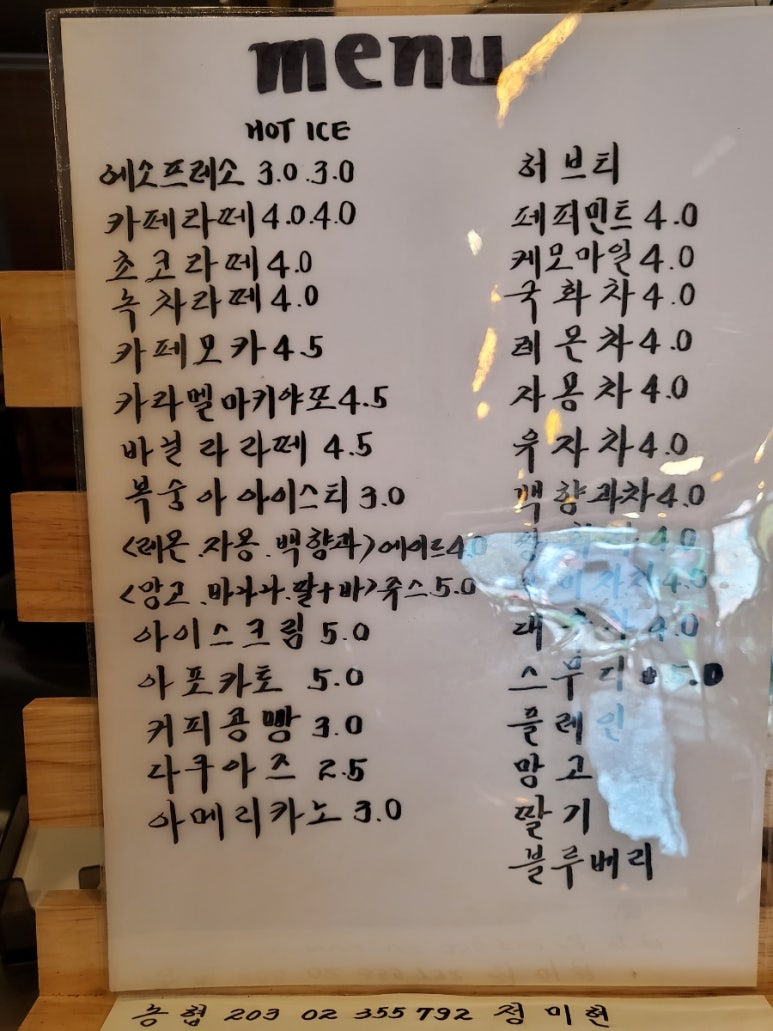 menu
HOT ICE
에소프레소 3.0 . 3.0
카페라떼 4.0. 4.0
쵸코라떼 4.0
녹차라떼 4.0
카페모카 4.5
카라멜마키야또 4.5
바닐라라떼 4.5
복숭아아이스티 3.0
<레몬.자몽.백향과>에이드 4.0
<망고.바나나.딸+바>쥬스 5.0
아이스크림 5.0
아포카토 5.0
커피콩빵 3.0
다쿠아즈 2.5
아메리카노 3.0
허브티
페퍼민트 4.0
케모마일 4.0
국화차 4.0
레몬차 4.0
자몽차 4.0
유자차 4.0
백향과차 4.0
4.0
4.0
대추차 4.0
스무디 5.0
플레인
망고
딸기
블루베리
농협 203 02 355792 정미현